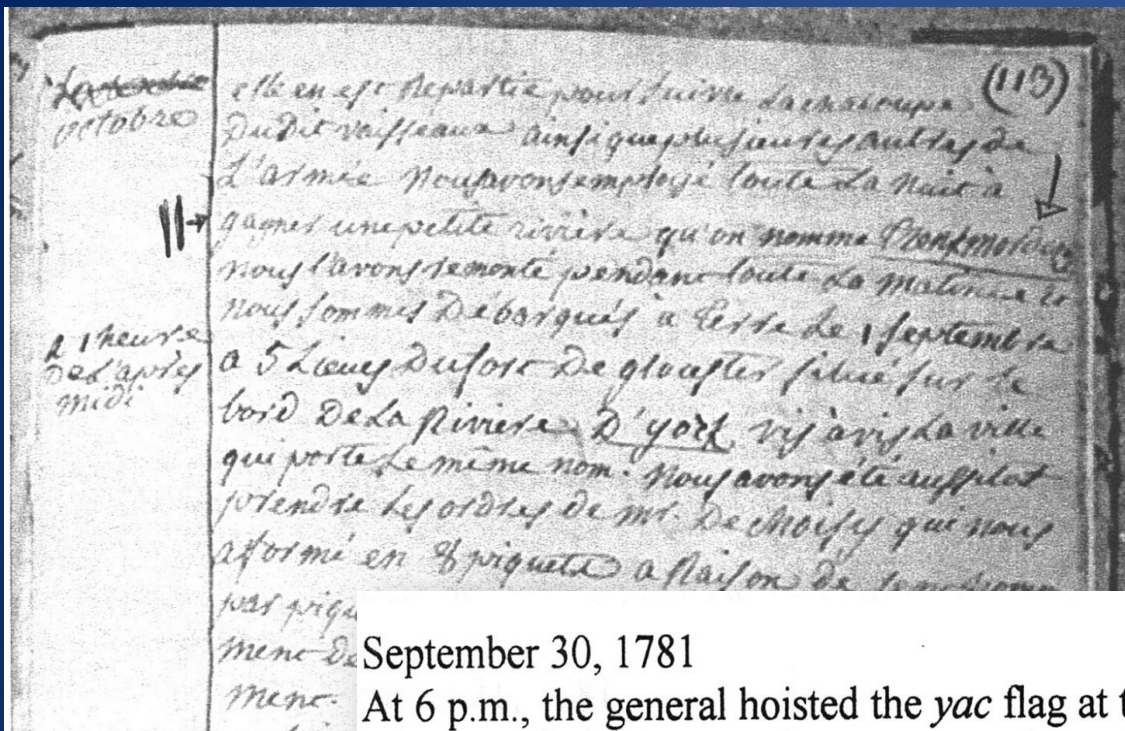 (113)
octobre
elle en est Repartie pour suivre La chaloupe
Du Dit vaisseaux ainsi que plusieurs autres de
L'armée Nous avons emploié toute La nuit à
gagner une petite rivière qu'on nomme
nous l'avons remonté pendant toute La matinée et
nous sommes Débarqués à terre Le 1 septembre
à 1 heure
De L'après
midi
a 5 Lieues Du fort De glouster situé sur le
bord De La Riviere D'york vis à vis La ville
qui porte Le même nom. Nous avons été aussitot
prendre Les ordres de mr. De choisy qui nous
a formé en 8 piquets a Raison de
par piqu
ment de
ment.
September 30, 1781
At 6 p.m., the general hoisted the yac flag at t